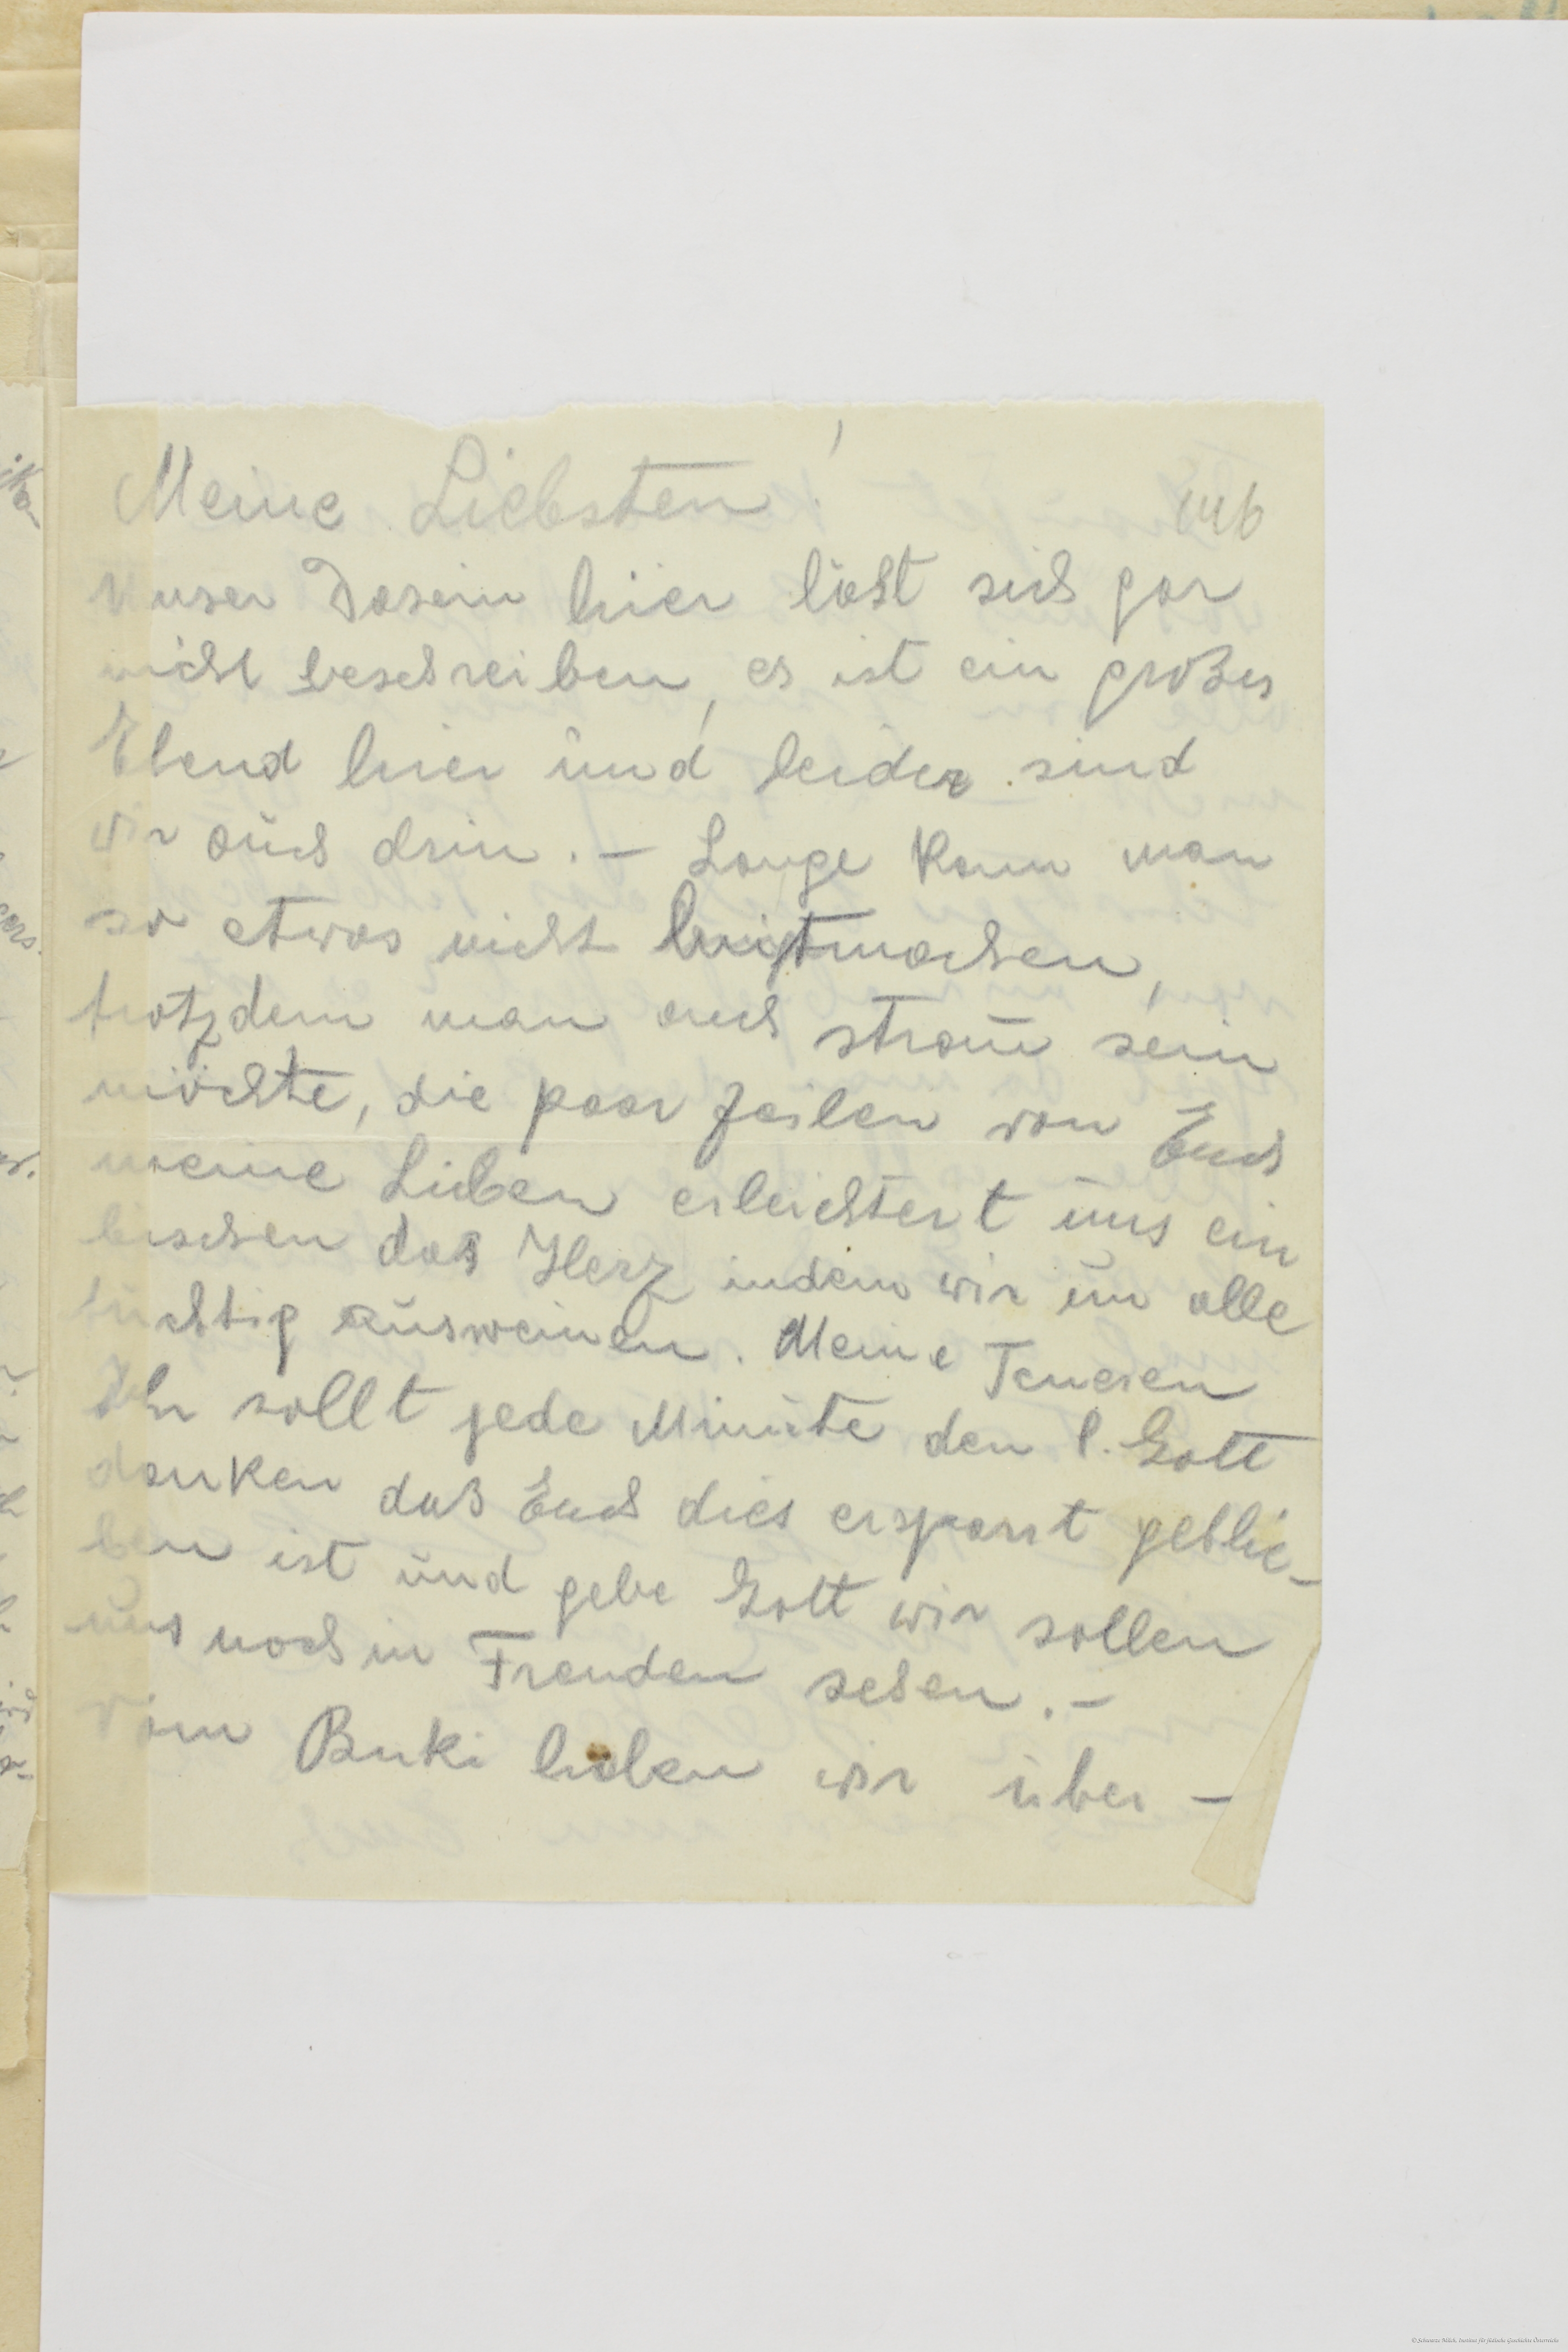 Meine Liebsten!
146
Unser Dasein hier läßt sich gar
nicht beschreiben, es ist ein großes
Elend hier und leider sind
wir auch drin. – Lange kann man
so etwas nicht mitmachen,
trotzdem man auch stram sein
möchte, die paar Zeilen von Euch
meine Lieben erleichtert uns ein
bischen das Herz indem wir um alle
tüchtig ausweinen. Meine Teueren
Ihr sollt jede Minute den l. Gott
danken daß Euch dies erspart geblie-
ben ist und gebe Gott wir sollen
uns noch in Freuden sehen. –
Vom Buki haben wir über-